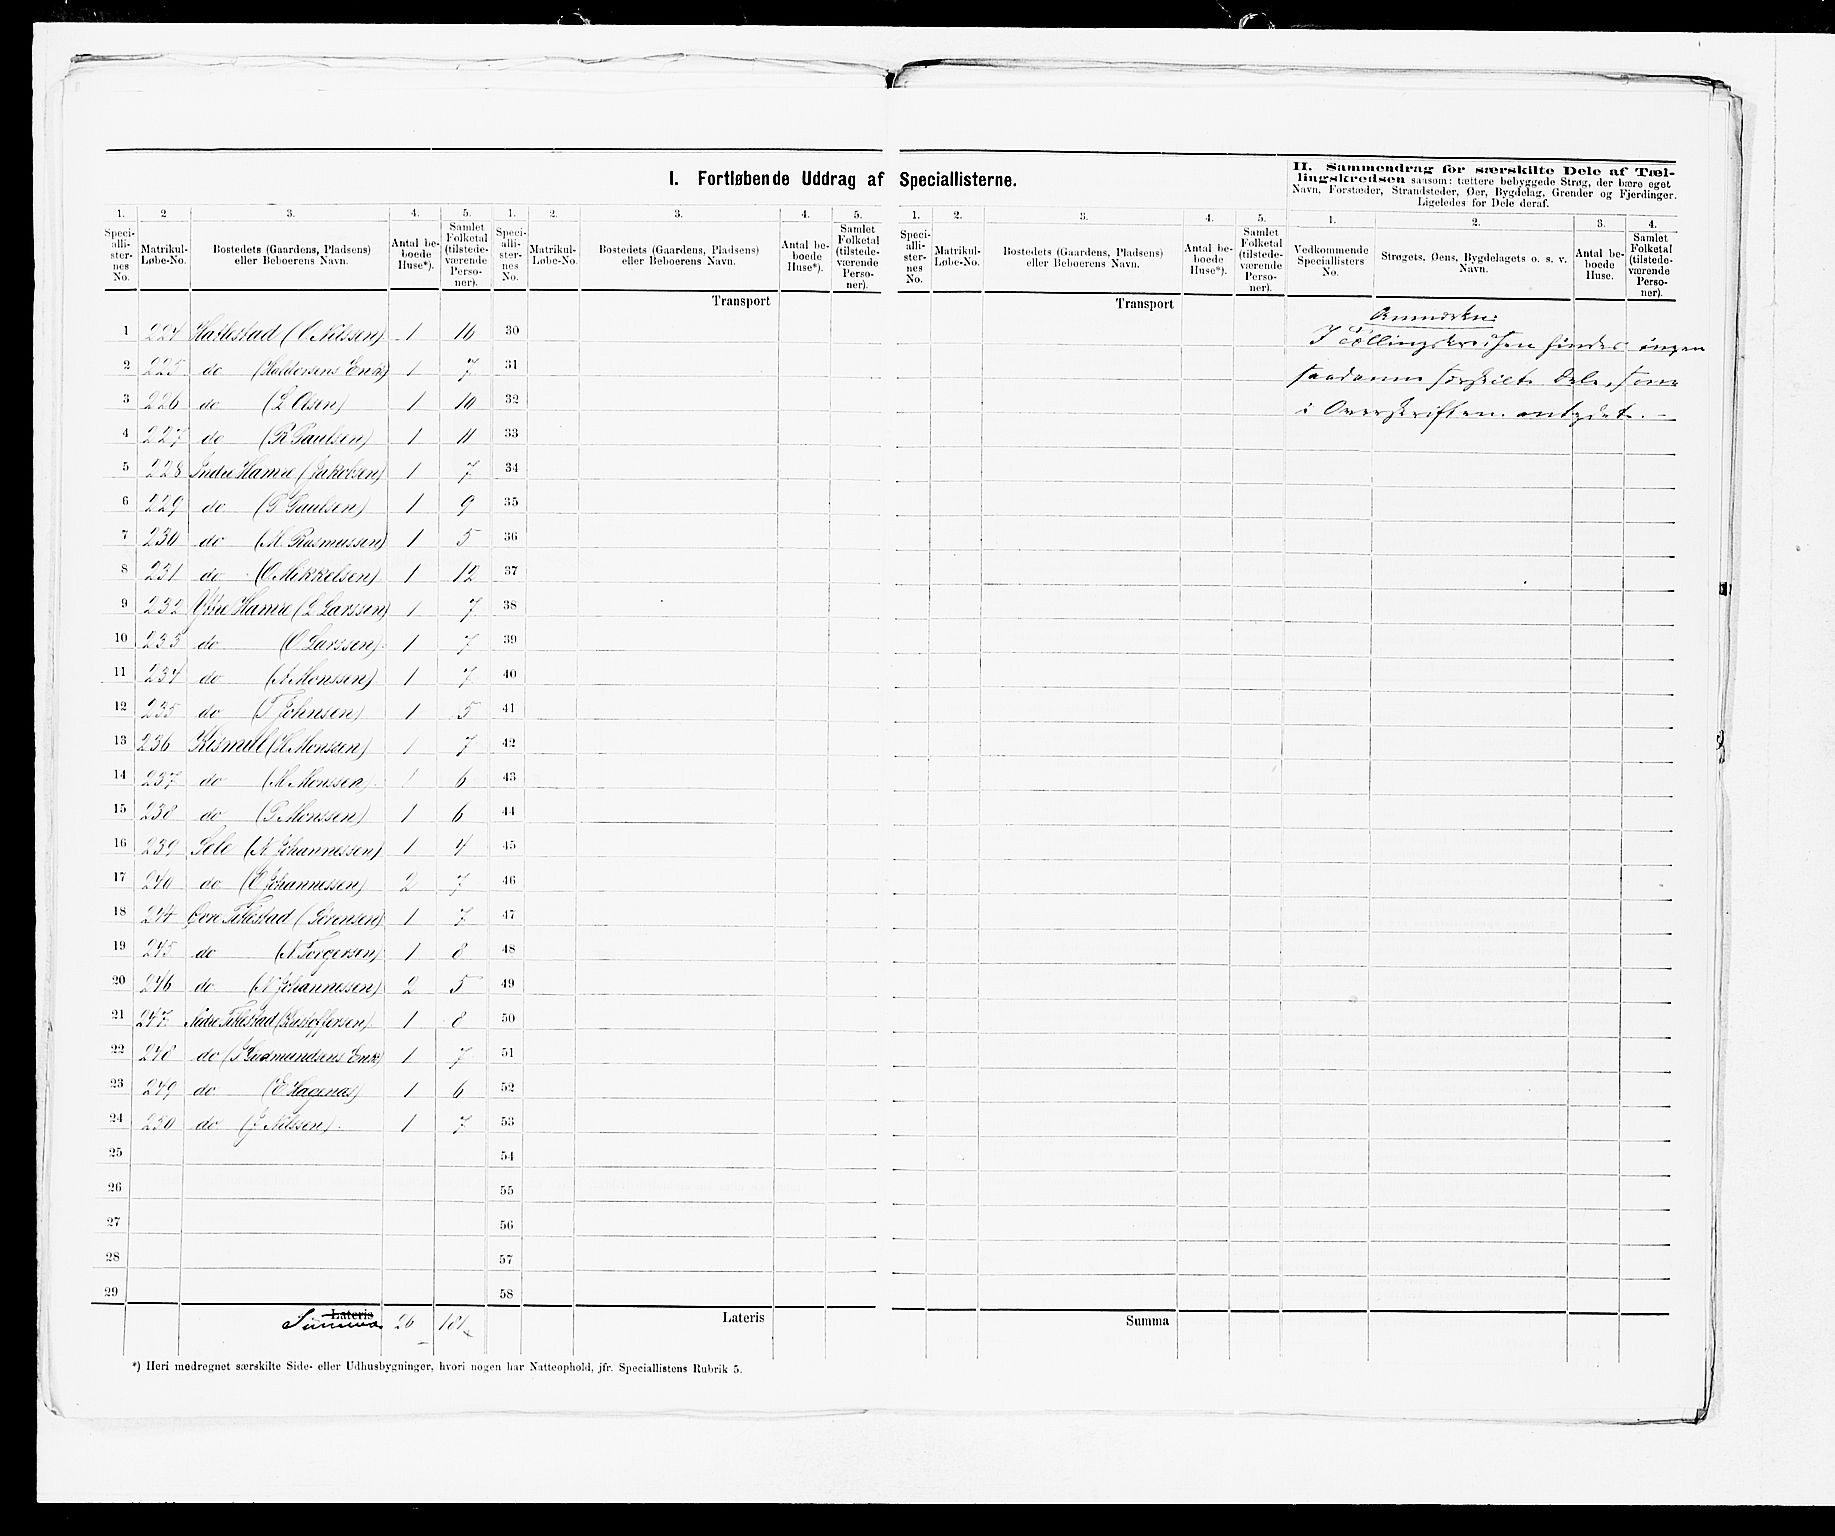 I. Fortløbende Uddrag af Speciallisterne.
II. Sammendrag for særskilte Dele af Tæl-
lingskredsen saasom: tættere bebyggede Strøg, der bære eget
Navn, Forstæder, Strandsteder, Øer, Bygdelag, Grender og Fjerdinger.
Ligeledes for Dele deraf.
1. 2 3. 4. 5. 1. 2. 3. 4. 5. 1. 2. 3. 4. 5. 1. 2. 3. 4.
Speciallisternes No. Matrikul-Løbe-No. Bostedets (Gaardens, Pladsens) eller Beboerens Navn. Antal beboede Huse*). Samlet Folketal (tilstedeværende Personer).
Speciallisternes No. Matrikul-Løbe-No. Bostedets (Gaardens, Pladsens) eller Beboerens Navn. Antal beboede Huse*). Samlet Folketal (tilstedeværende Personer).
Speciallisternes No. Matrikul-Løbe-No. Bostedets (Gaardens, Pladsens) eller Beboerens Navn. Antal beboede Huse*). Samlet Folketal (tilstedeværende Personer).
Vedkommende Speciallisters No. Strøgets, Øens, Bygdelagets o. s. v. Navn. Antal beboede Huse. Samlet Folketal (tilstedeværende Personer).
Transport Transport
1 224 Hatlestad (O Nilssen) 1 10 30
2 225 do (Haldorsens Enke) 1 7 31
3 226 do (L Olsen) 1 10 32
4 227 do (R Paulsen) 1 11 33
5 228 Indre Hamre (Jakobsen) 1 7 34
6 229 do (P Paulsen) 1 9 35
7 230 do (M. Rasmussen) 1 5 36
8 231 do (O Mikkelsen) 1 12 37
9 232 Ytre Hamre (L Larssen) 1 7 38
10 233 do (O Larssen) 1 7 39
11 234 do (A Monssen) 1 7 40
12 235 do (T Johnsen) 1 5 41
13 236 Kismul (H Monssen) 1 7 42
14 237 do (M Monssen) 1 6 43
15 238 do (P Monssen) 1 6 44
16 239 Sele (N Johannessen) 1 4 45
17 240 do (E Johannessen) 2 7 46
18 244 Øvre Tillestad (Sørensen) 1 7 47
19 245 do (N Torgersen) 1 8 48
20 246 do (N Johannessen) 2 5 49
21 247 Nedre Tillestad (Kristoffersen) 1 8 50
22 248 do (Gudmundsens Enke) 1 7 51
23 249 do (E Hagenas) 1 6 52
24 250 do (J Nilssen) 1 7 53
25 54
26 55
27 56
28 57
29 58
Lateris Summa 26 181 Lateris Summa
Anmærkn:
I Tællingskredsen findes ingen
saadanne særskilte Dele, som
i Overskriften antydet. –
*) Heri medregnet særskilte Side- eller Udhusbygninger, hvori nogen har Natteophold, jfr. Speciallistens Rubrik 5.